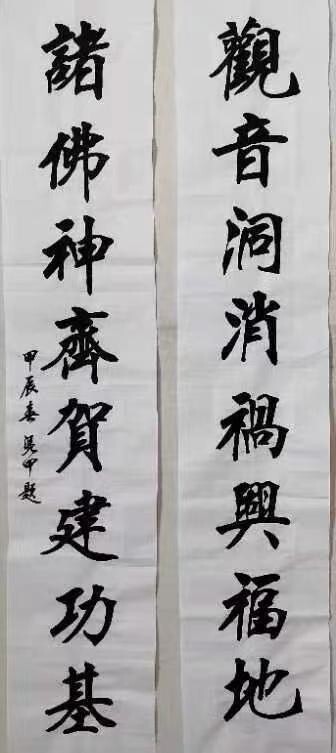 觀音洞消禍興福地
諸佛神齊賀建功基
甲辰春吴中題